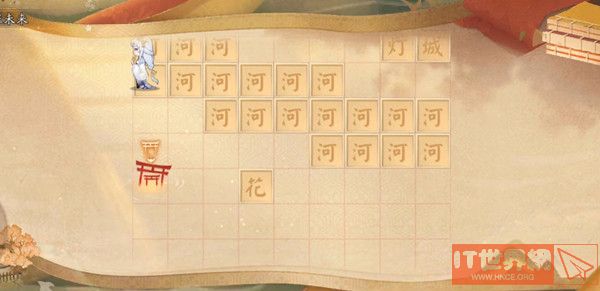 未来
河 河 灯 城
河 河 河 河 河
河 河 河 河 河 河 河
河 河 河 河
花
IT世界網